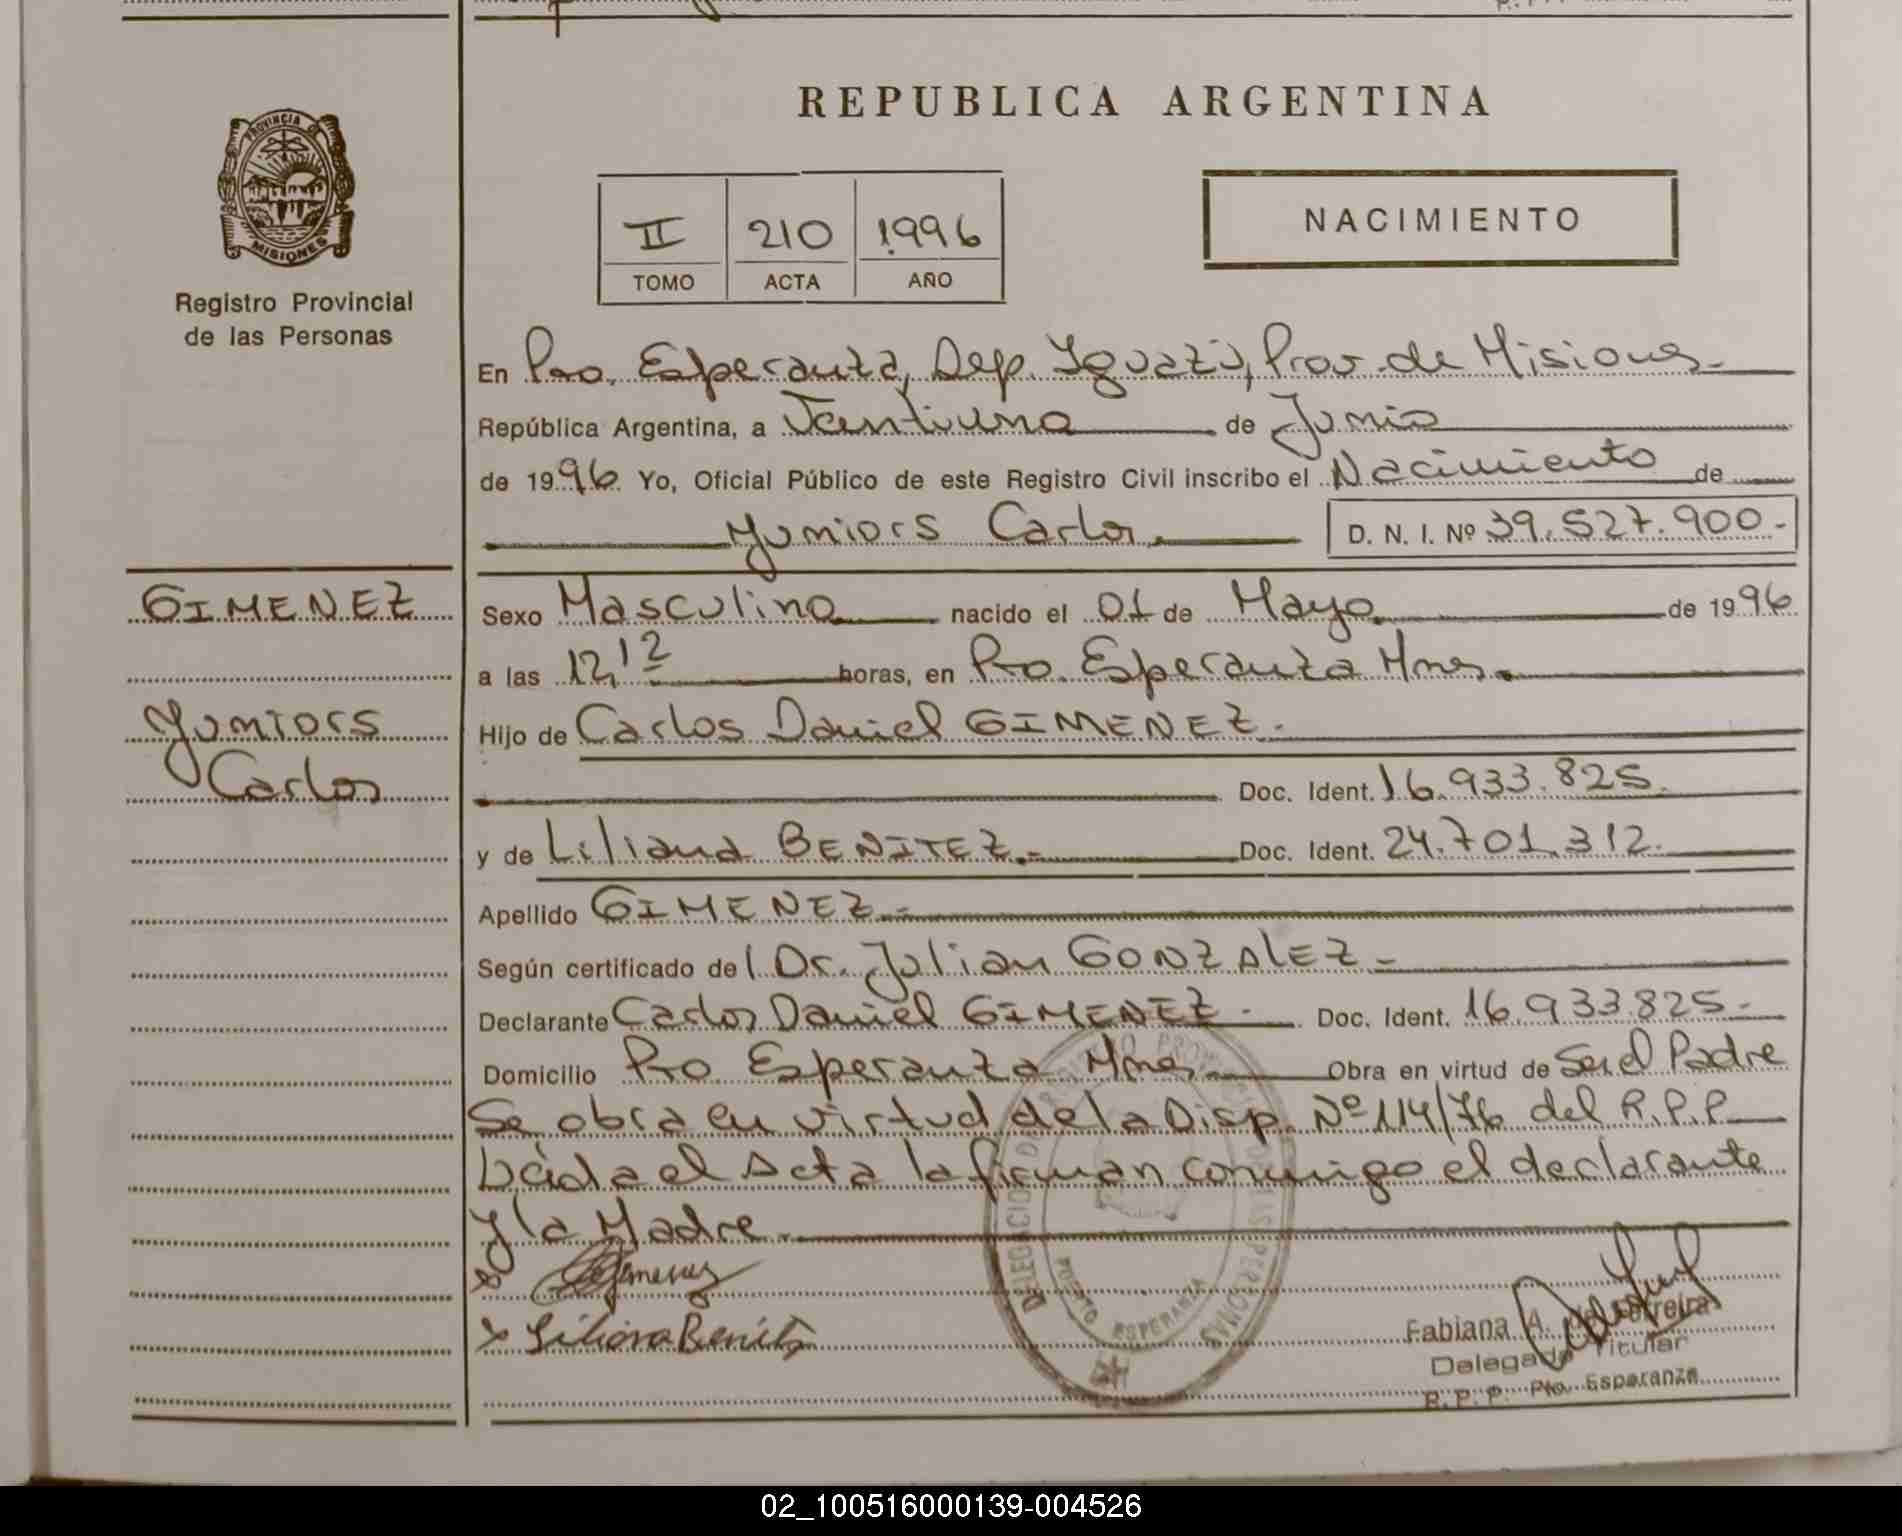 REPUBLICA ARGENTINA
PROVINCIA DE MISIONES
Registro Provincial
de las Personas
II 210 1996
TOMO ACTA AÑO
NACIMIENTO
En Pto. Esperanza, Dep. Iguazú, Prov. de Misiones.-
República Argentina, a Veintiuno de Junio
de 1996 Yo, Oficial Público de este Registro Civil inscribo el Nacimiento de
Yuniors Carlos. D. N. I. Nº 39.527.900.-
GIMENEZ
Yuniors
Carlos
Sexo Masculino nacido el 01 de Mayo de 1996
a las 12,12 horas, en Pto. Esperanza Mnes.
Hijo de Carlos Daniel GIMENEZ.-
Doc. Ident. 16.933.825.
y de Liliana BENITEZ.- Doc. Ident. 24.701.312.
Apellido GIMENEZ.-
Según certificado del Dr. Julian GONZALEZ.-
Declarante Carlos Daniel GIMENEZ.- Doc. Ident. 16.933.825.-
Domicilio Pto Esperanza Mnes. Obra en virtud de Ser el Padre
Se obra en virtud de la Disp. Nº 114/76 del R.P.P.
Leida el Acta la firman conmigo el declarante
y la Madre.
Gimenez
x Liliana Benitez
DELEGACION REGISTRO PROVINCIAL DE LAS PERSONAS
PUERTO ESPERANZA
Fabiana A. de Ferreira
Delegada Titular
R. P. P. Pto. Esperanza
02_100516000139-004526